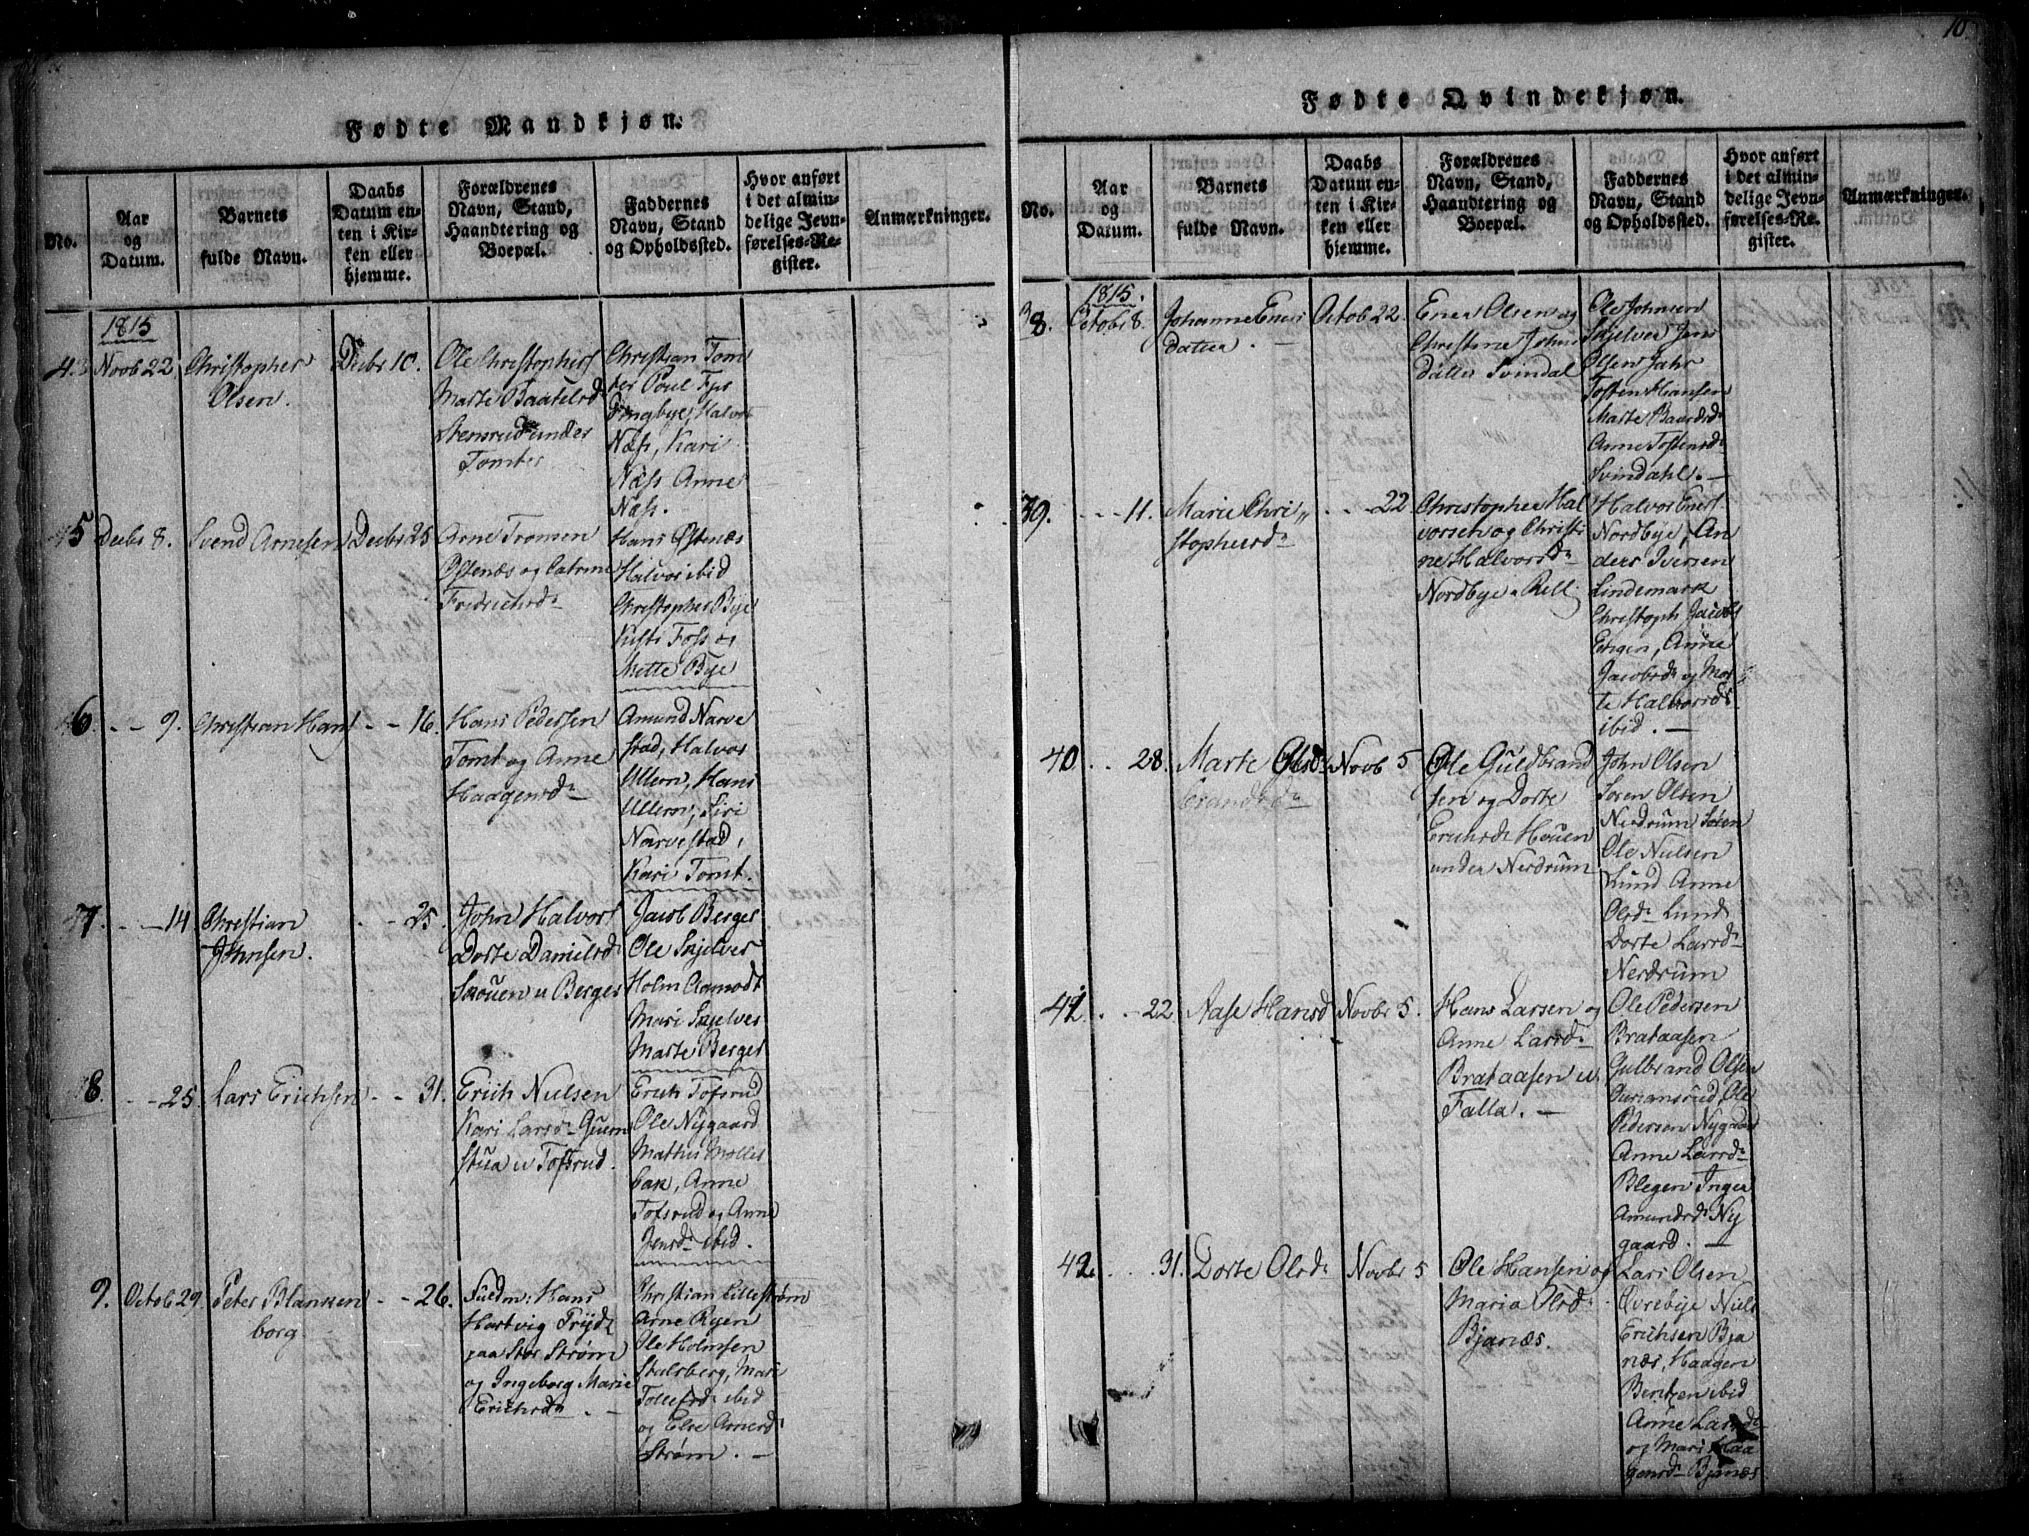 10.
Fødte Mandkjøn.
No.
Aar
og
Datum.
Barnets
fulde Navn.
Daabs
Datum en-
ten i Kir-
ken eller
hjemme.
Forældrenes
Navn, Stand,
Haandtering og
Boepæl.
Faddernes
Navn, Stand
og Opholdssted.
Hvor anført
i det almin-
delige Jevn-
førelses-Re-
gister.
Anmærkninger.
1815
43 Novb 22.
Christopher
Olsen.
Decbr 10.
Ole Christophers
Marte Baatelsd
Stensrud under
Tomter
Christian Tom
ter Poul Fys
Dingbye, Halvor
Næss, Kari
Næss Anne
Næss.
5 Decbr 8.
Svend Arnesen
Decbr 25
Arne Tronsen
Østenæs og Catrine
Fredrichsd
Hans Østenæs
Halvor ibid
Christopher Bye
Foss og
Mette Bye
6. - - 9.
Christian Hans
- - 16.
Hans Pedersen
Tomt og Anne
Haagensd
Amund Narve
stad, Halvor
Ullern, Hans
Ullern, Siri
Narvestad,
Kari Tomt.
7. - - 14
Christian
Johnsen.
- - 25.
John Halvors
Dorte Danielsd
Skouen u Berger
Jacob Berger
Ole Skjelver
Holm Aamodt
Mari Skjelver
Marte Berger
8. - - 25.
Lars Erichsen
- - 31.
Erich Nielsen
Kari Larsd
stua u Tofsrud.
Erich Tofsrud
Ole Nygaard
Mathis Møller
bak, Anne
Tofsrud og Anne
Jensd ibid.
9. Octob 29.
Peter Blanken
borg
- - 26.
Hans
Hartvig Fryd
paa Stor Strøm
og Ingeborg Marie
Erichsd. -
Christian Lillestrøm
Arne Ryen
Ole Holmsen
Stalsberg, Mari
Tollefsd ibid
og Else Arnesd
Strøm. -
Fødte Qvindekjøn.
No.
Aar
og
Datum.
Barnets
fulde Navn.
Daabs
Datum en-
ten i Kir-
ken eller
hjemme.
Forældrenes
Navn, Stand,
Haandtering og
Boepæl.
Faddernes
Navn, Stand
og Opholdssted.
Hvor anført
i det almin-
delige Jevn-
førelses-Re-
gister.
Anmærkninger.
1815.
38. Octobr 8.
Johanne Eners
datter. -
Octob 22.
Ener Olsen og
Christine Johns
datter Svindal
Ole Johnsen
Skjelver Jens
Olsen Jahr
Tosten Hansen
Marte Baardsd
Anne Tostensd
Svindahl. -
39. - - 11.
Marie Chri
stophersd
- - 22
Christopher Hal
vorsen og Christi
ne Halvorsd
Nordbye i Rell
Halvor Eners
Nordbye, An
ders Iversen
Lindemark
Christoph Jacobs
Engen, Anne
Jacobsd og Mar
te Halvorsd
ibid. -
40. - - 28.
Marte Olsd
Novb 5
Ole Guldbrand
sen og Dorte
Erichsd Houen
under Nerdrum
John Olsen
Soren Olsen
Nerdrum Soren
Ole Nielsen
Lund Anne
Olsd Lund
Dorte Larsd
Nerdrum
41. - - 22.
Aase Hansd
Novbr 5.
Hans Larsen og
Anne Larsd
Brataasen u
Falla. -
Ole Pedersen
Brataasen
Gulbrand Olsen
Ole
Pedersen Nygaard
Anne Larsd
Blegen Inger
Amundsd Ny
gaard. -
42. - - 31.
Dorte Olsd
Novbr 5
Ole Hansen og
Maria Olsd
Bjanæs.
Lars Olsen
Øvrebye Niels
Erichsen Bja
næs, Haagen
Bentsen ibid
Anne Larsd
og Mari Haa
gensd Bjanæs